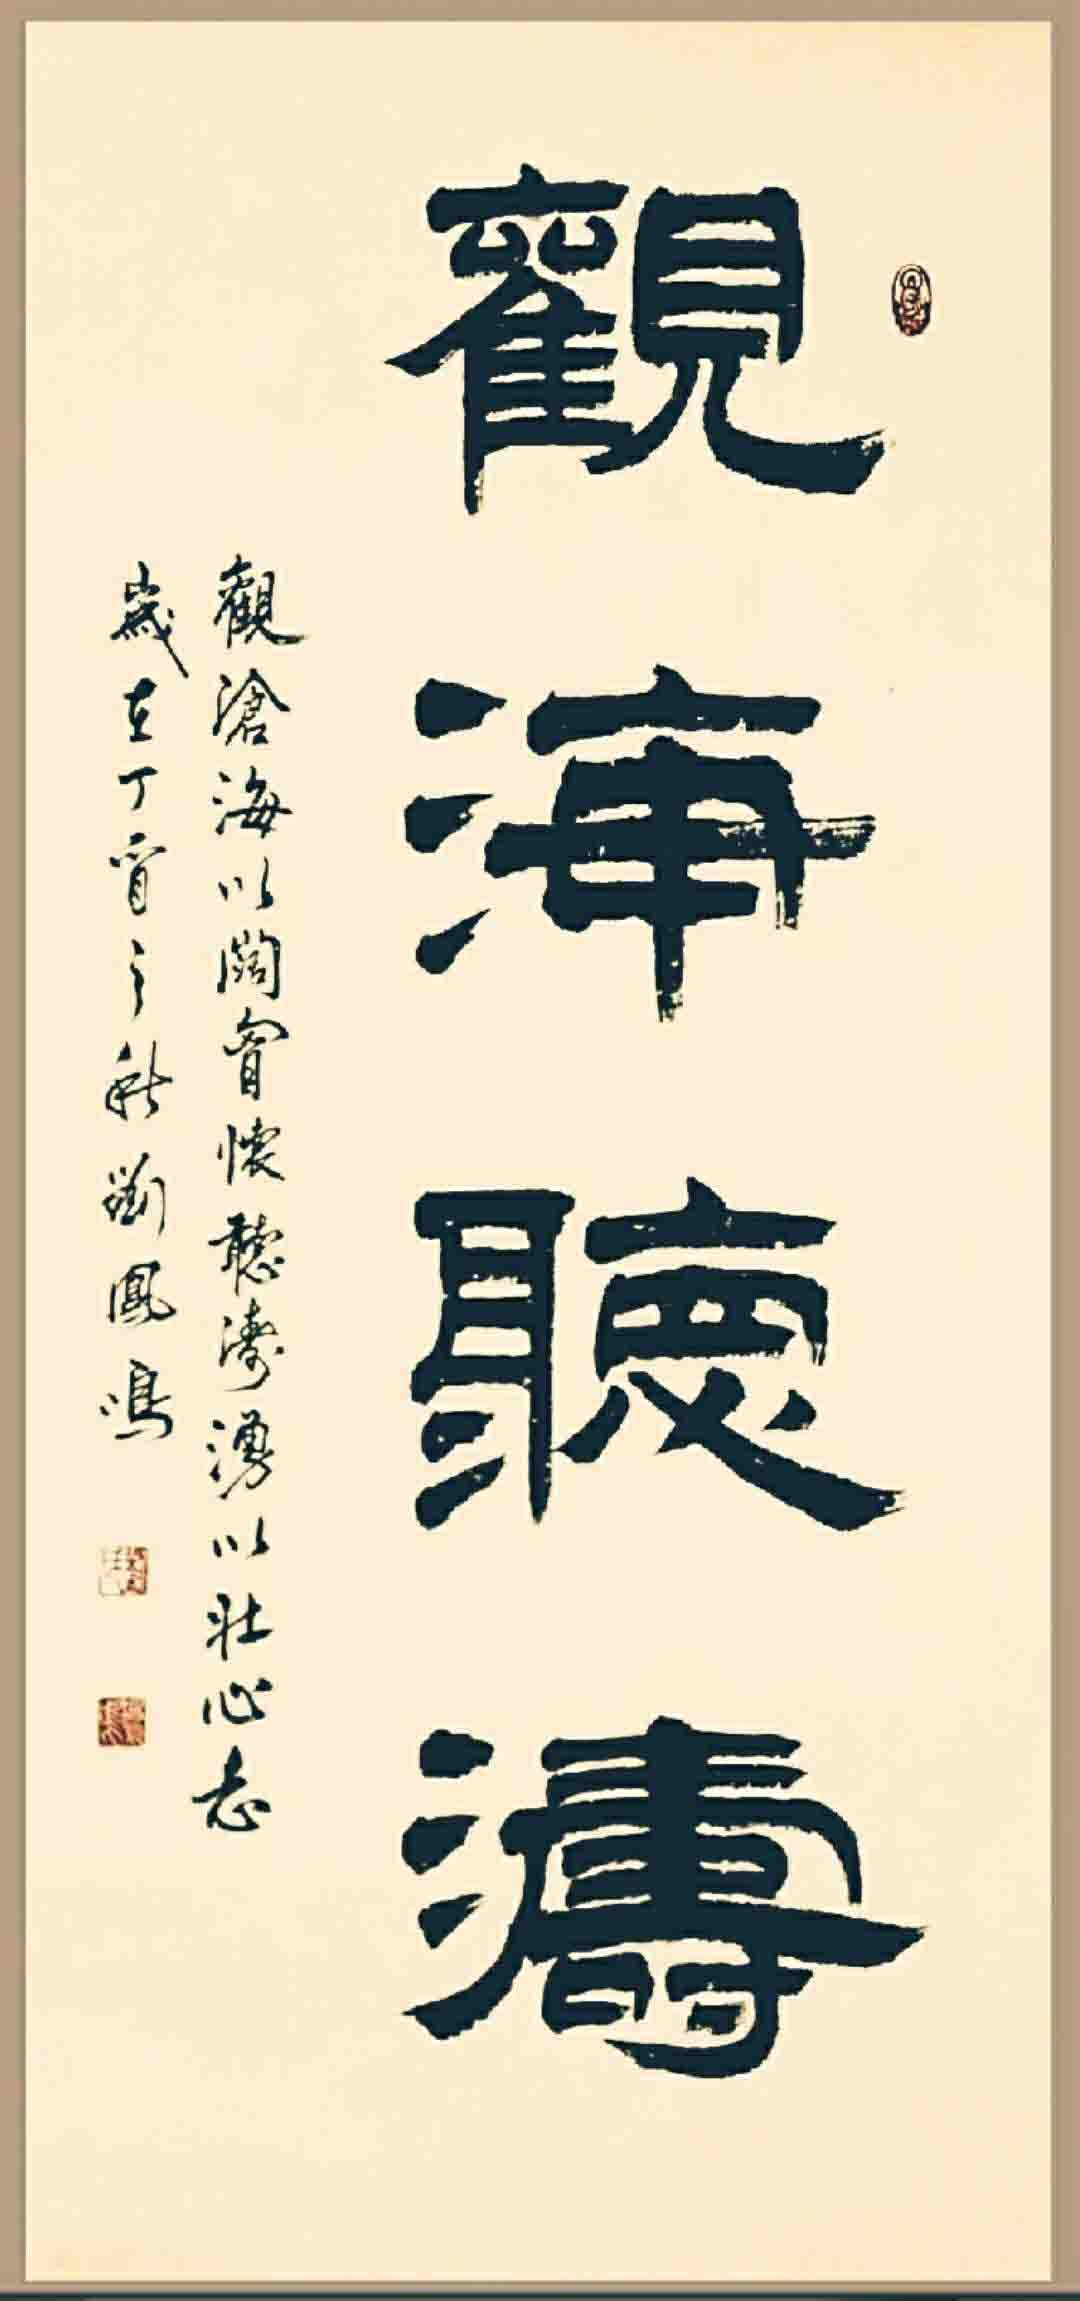 觀海聽濤
觀滄海以闊胷懷聽濤湧以壯心志
歲在丁酉之秋劉鳳鳴